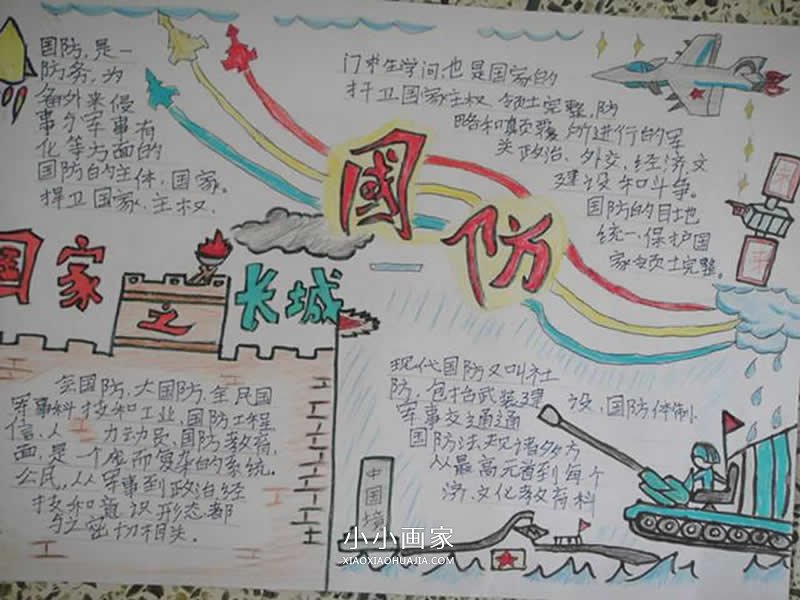 国防,是一
防务,为
备外来侵
事力军事有
化等方面的
国防的主体,国家。
捍卫国家、主权、
门求生学问,也是国家的
捍卫国家主权、领土完整,防
略和颠覆,所进行的军
关政治、外交、经济、文
建设和斗争。
国防的目地
统一、保护国
家领土完整。
國防
国家之长城
全国防、大国防、全民国
军事科技和工业、国防工程
信、人 力动员、国防教育,
面,是一个庞而复杂的系统。
公民,从军事到政治、经
技和意识形态都
与之密切相关。
现代国防又叫社
防,包括武装建 设、国防体制、
军事交通通
国防法规诸多方
从最高元首到每个
济、文化教育科
中国境
小小画家
XIAOXIAOHUAJIA.COM